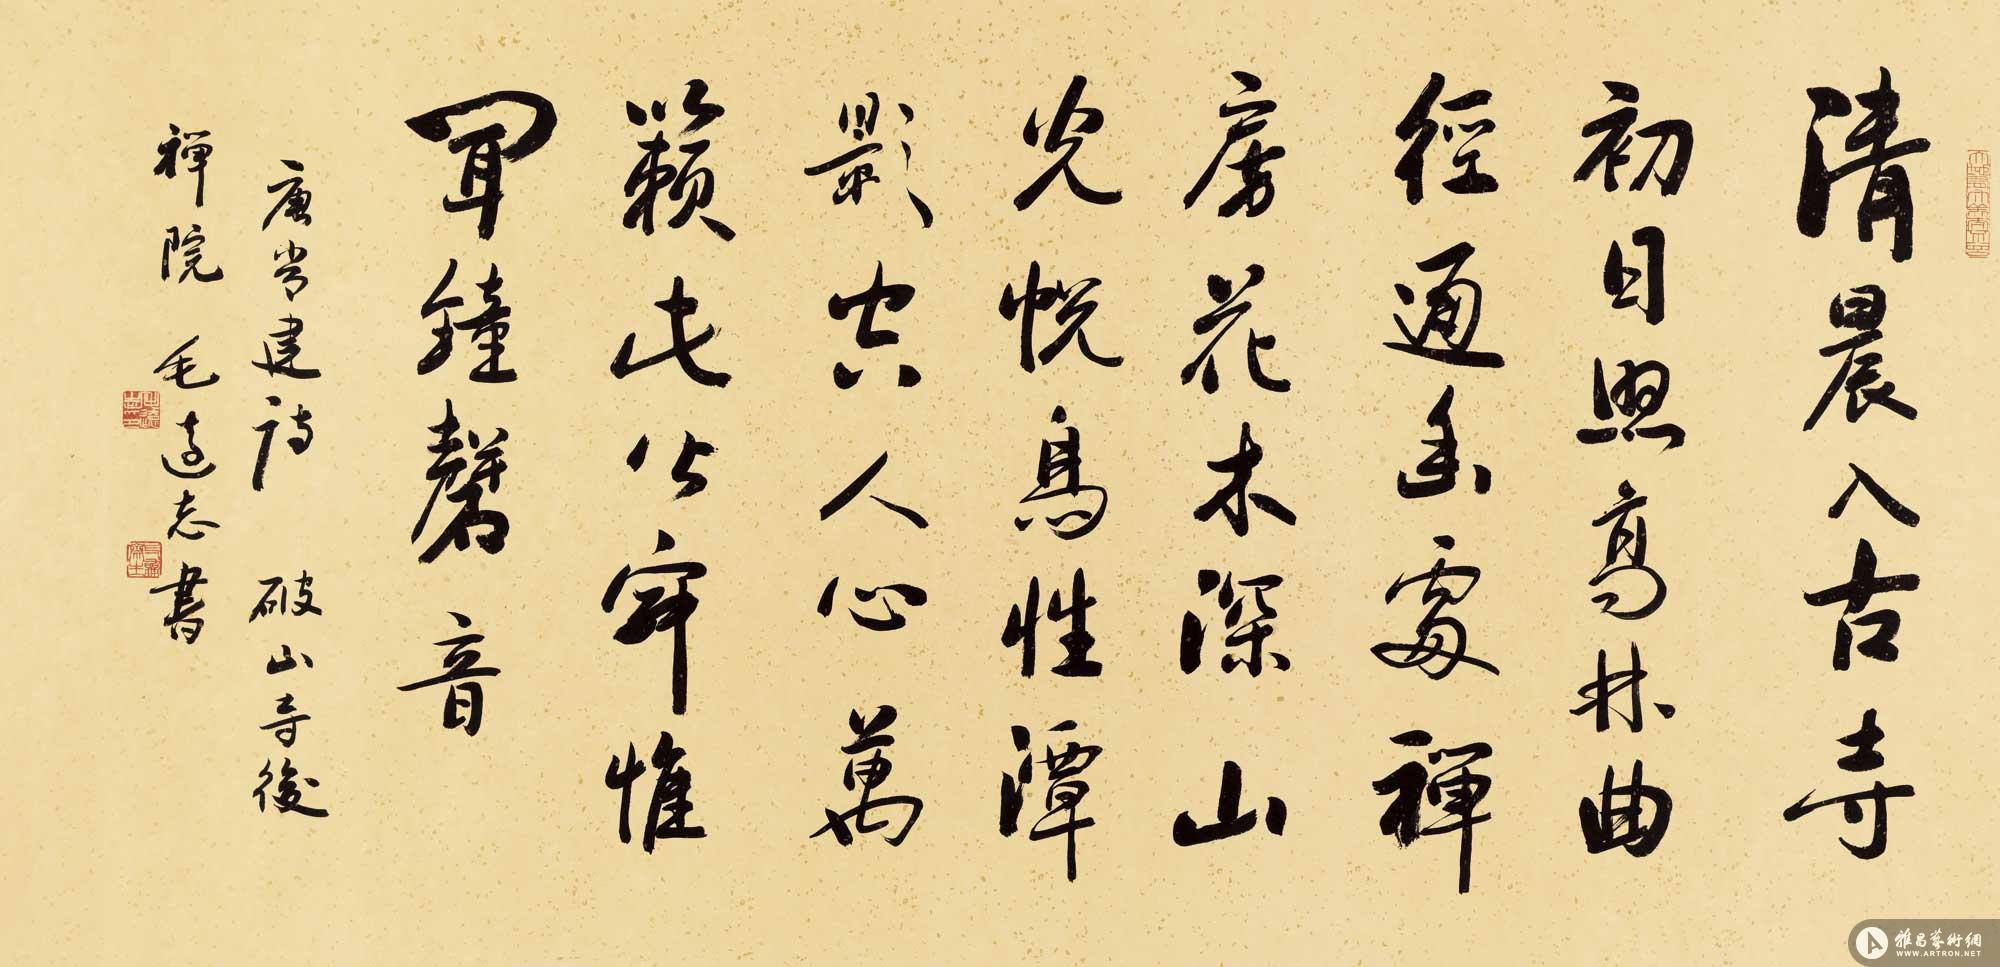 清晨入古寺
初日照高林曲
徑通幽處禪
房花木深山
光悅鳥性潭
影空人心萬
籟此皆寂惟
聞鐘磬音
唐常建詩 破山寺後
禪院 毛遠志書
雅昌藝術網
WWW.ARTRON.NET